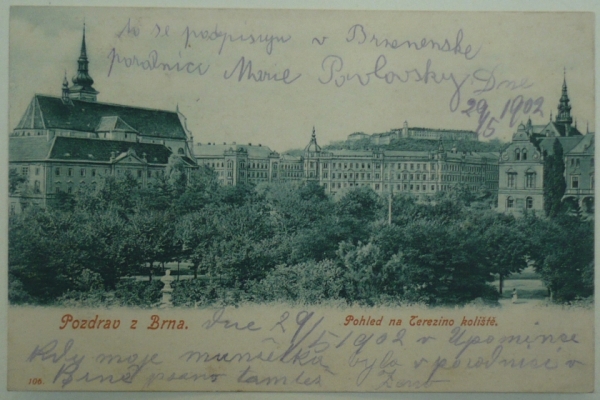 to se podpisuju v Brnenenske
porodnici Marie Pavlovsky Dne
29/5 1902
Pozdrav z Brna.
Pohled na Terezino koliště.
Dne 29/5 1902 v Upomince
Kdy moje mumička byla v porodnici v
Brně psano tamtes
106.